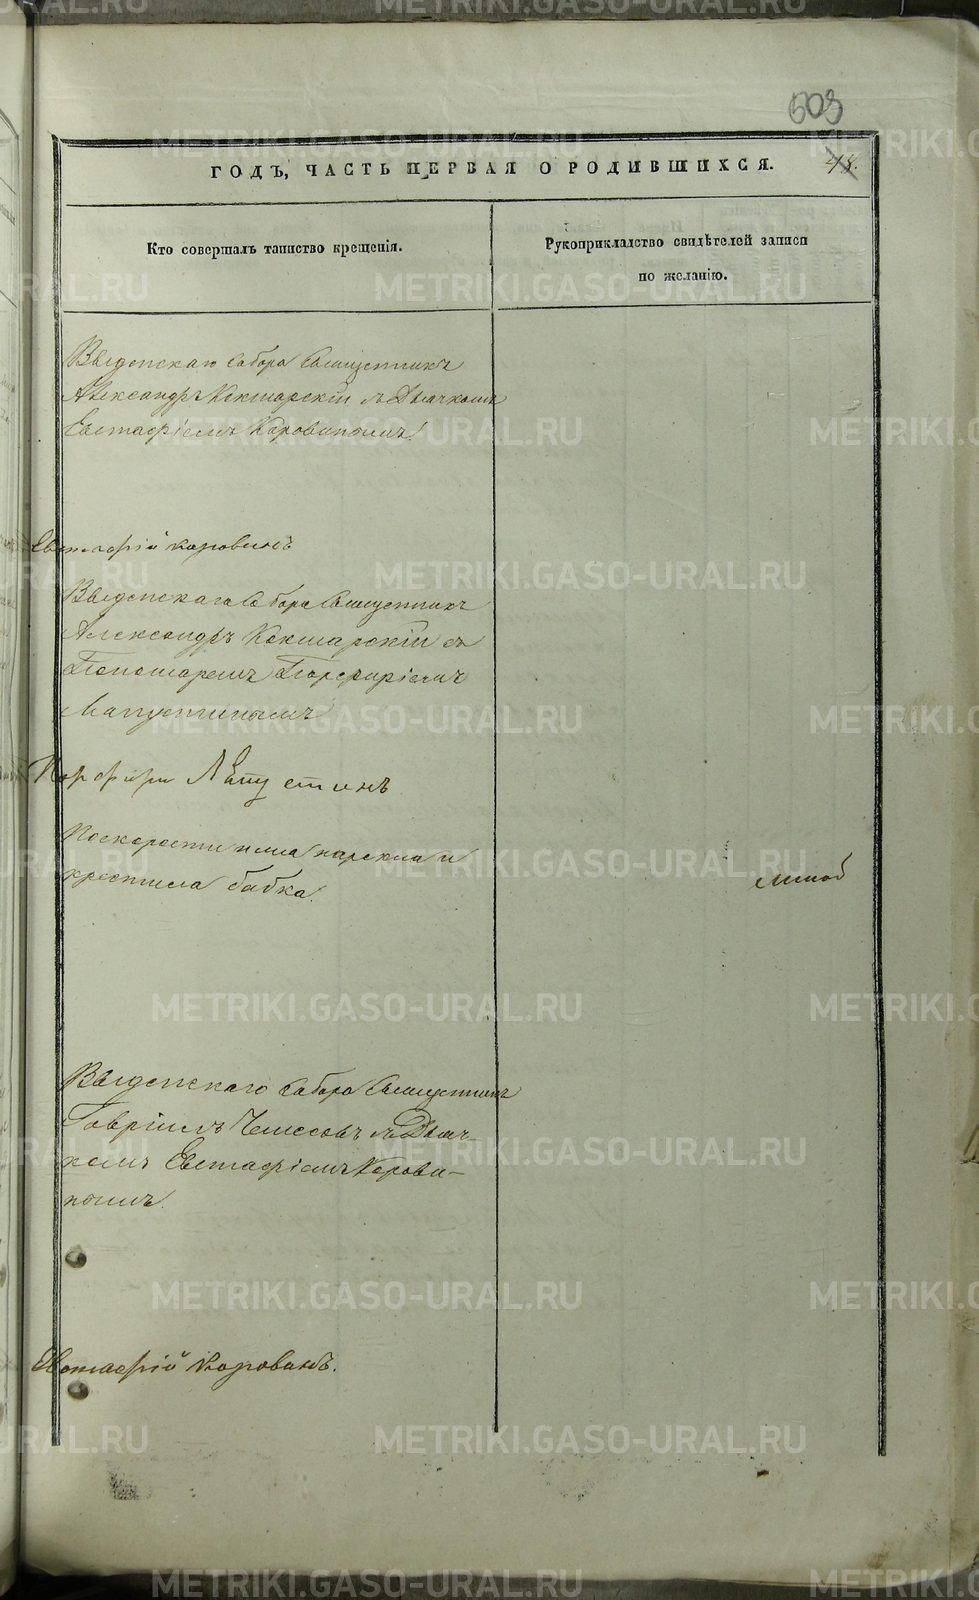 503
48.
ГОДЪ, ЧАСТЬ ПЕРВАЯ О РОДИВШИХСЯ.
Кто совершалъ таинство крещенія.
Рукоприкладство свидѣтелей записи
по желанію.
Введенскаго Собора Священникъ
Александръ Кокшарскій съ Дьячкомъ
Евстафіемъ Коровинымъ.
Евстафій Коровинъ
Введенскаго Собора Священникъ
Александръ Кокшарскій съ
Пономаремъ Порфиріемъ
Лапустинымъ
Порфири Лапустинъ
По скорости имя нарекла и
крестила бабка.
Введенскаго Собора Священникъ
Гавріилъ съ Дьяч-
комъ Евстафіемъ Корови-
нымъ.
Евстафій Коровинъ.
METRIKI.GASO-URAL.RU